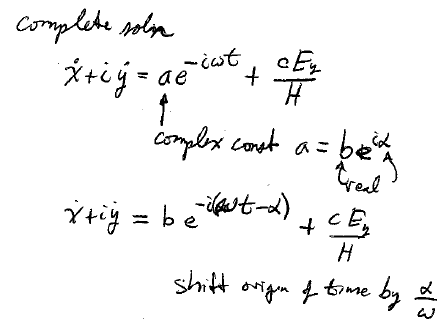 complete soln
ẋ + iẏ = ae^{-iωt} + cE_y/H
complex const a = be^{iα}
real
ẋ + iẏ = b e^{-i(ωt-α)} + cE_y/H
shift origin of time by α/ω